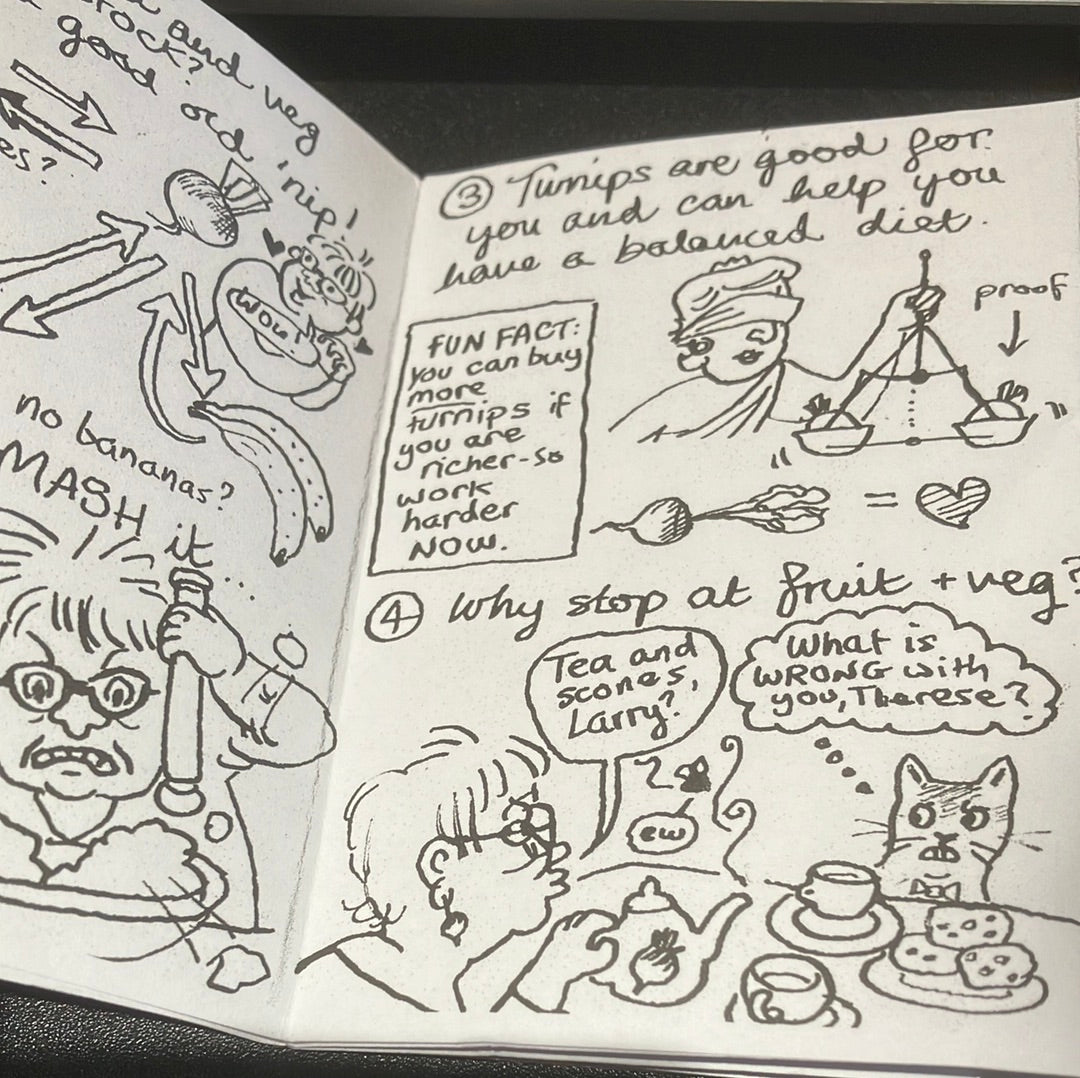 and veg
ROCK?
good old 'nip!
es?
WOW!
no bananas?
MASH it...
③ Turnips are good for
you and can help you
have a balanced diet.
proof
FUN FACT:
you can buy
more
turnips if
you are
richer-so
work
harder
NOW.
=
④ Why stop at fruit + veg?
Tea and
scones,
Larry?
What is
WRONG with
you, Therese?
ew